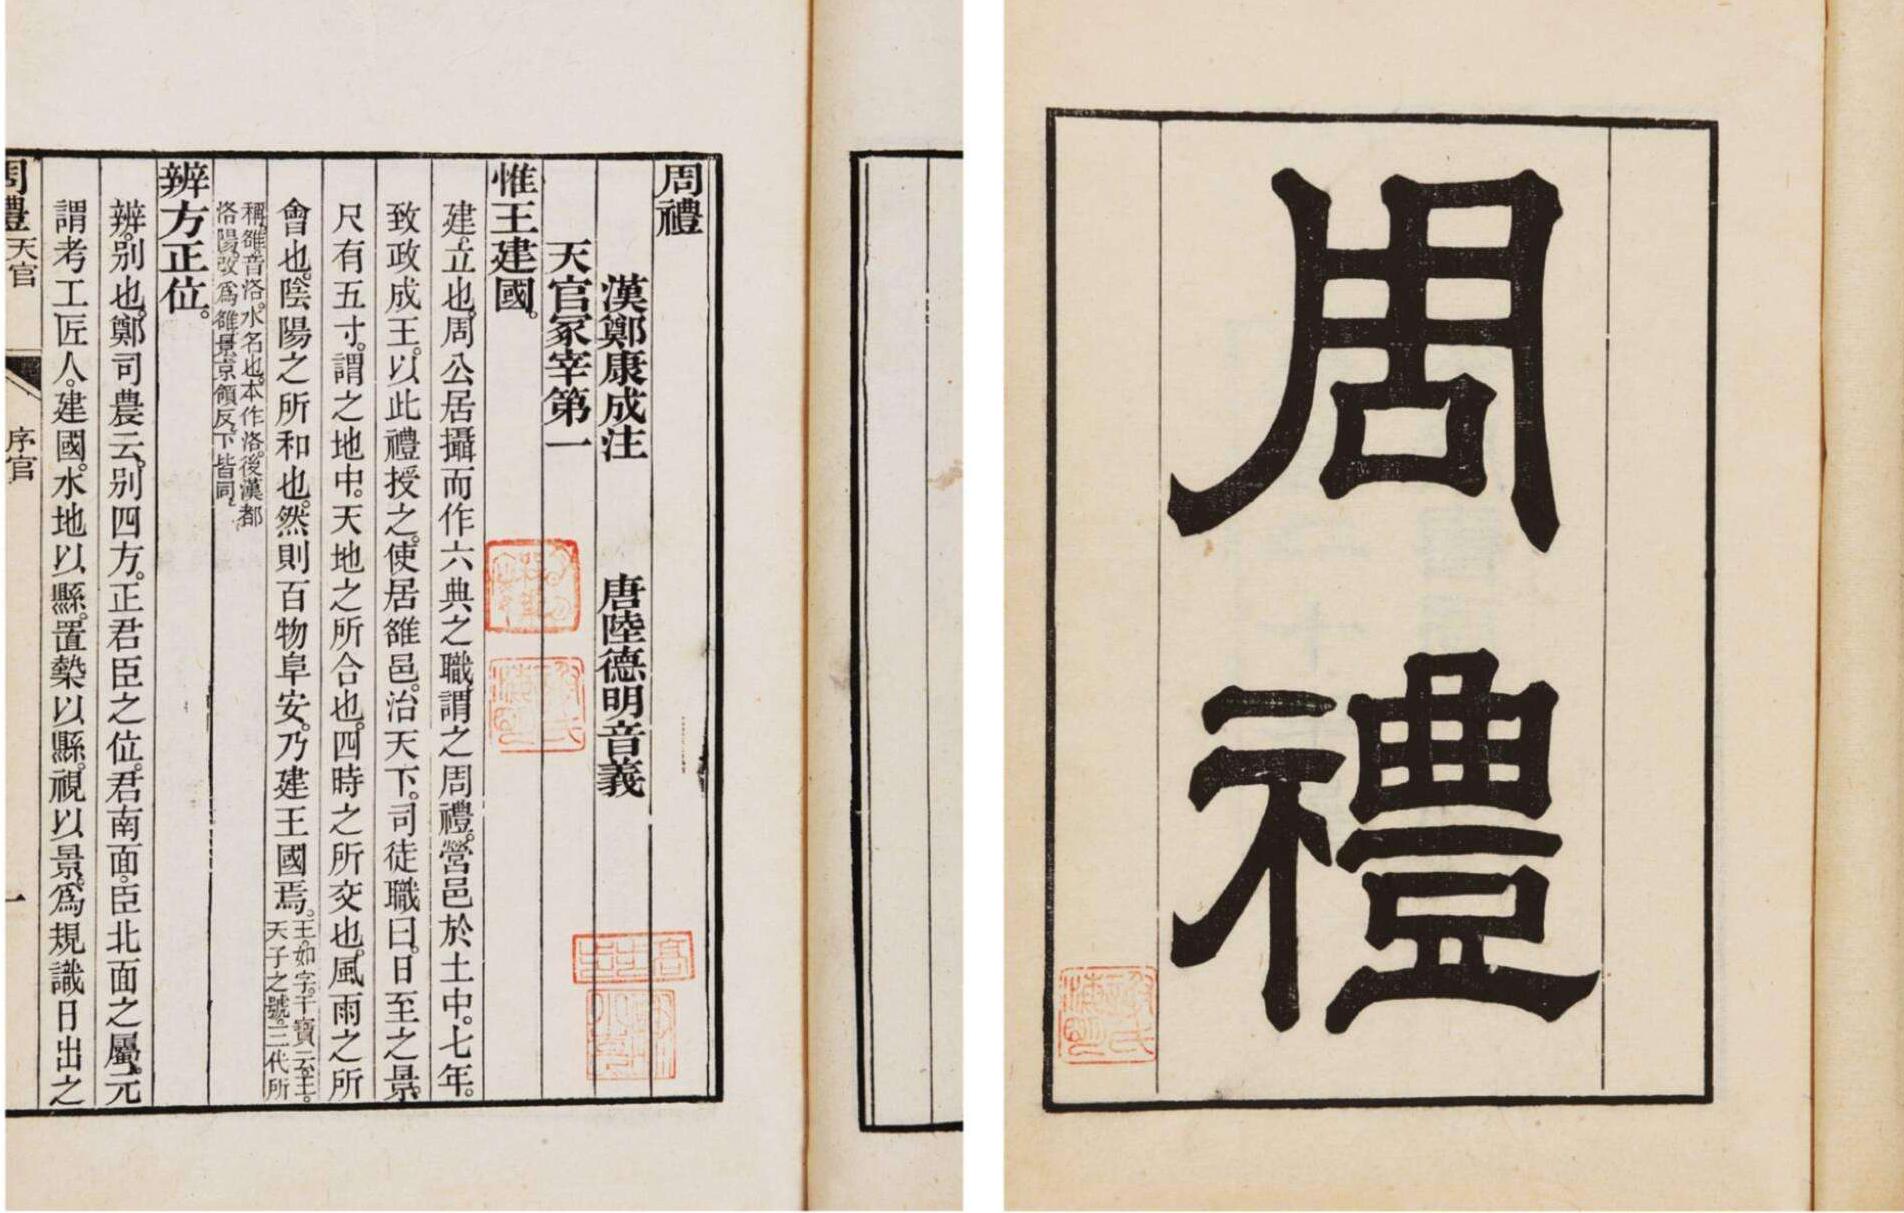 周禮
周禮
漢鄭康成注　唐陸德明音義
天官冢宰第一
惟王建國。
建。立也。周公居攝而作六典之職。謂之周禮。營邑於土中。七年。
致政成王。以此禮授之。使居雒邑。治天下。司徒職曰。日至之景。
尺有五寸。謂之地中。天地之所合也。四時之所交也。風雨之所
會也。陰陽之所和也。然則百物阜安。乃建王國焉。王。如字。干寶云。王。
天子之號。三代所
稱。雒。音洛。水名也。本作洛。後漢都
洛陽。改爲雒。景。京領反。下皆同。
辨方正位。
辨。别也。鄭司農云。别四方。正君臣之位。君南面。臣北面之屬。元
謂考工匠人。建國。水地以縣。置槷以縣。視以景。爲規識日出之
周禮 天官 序官 一